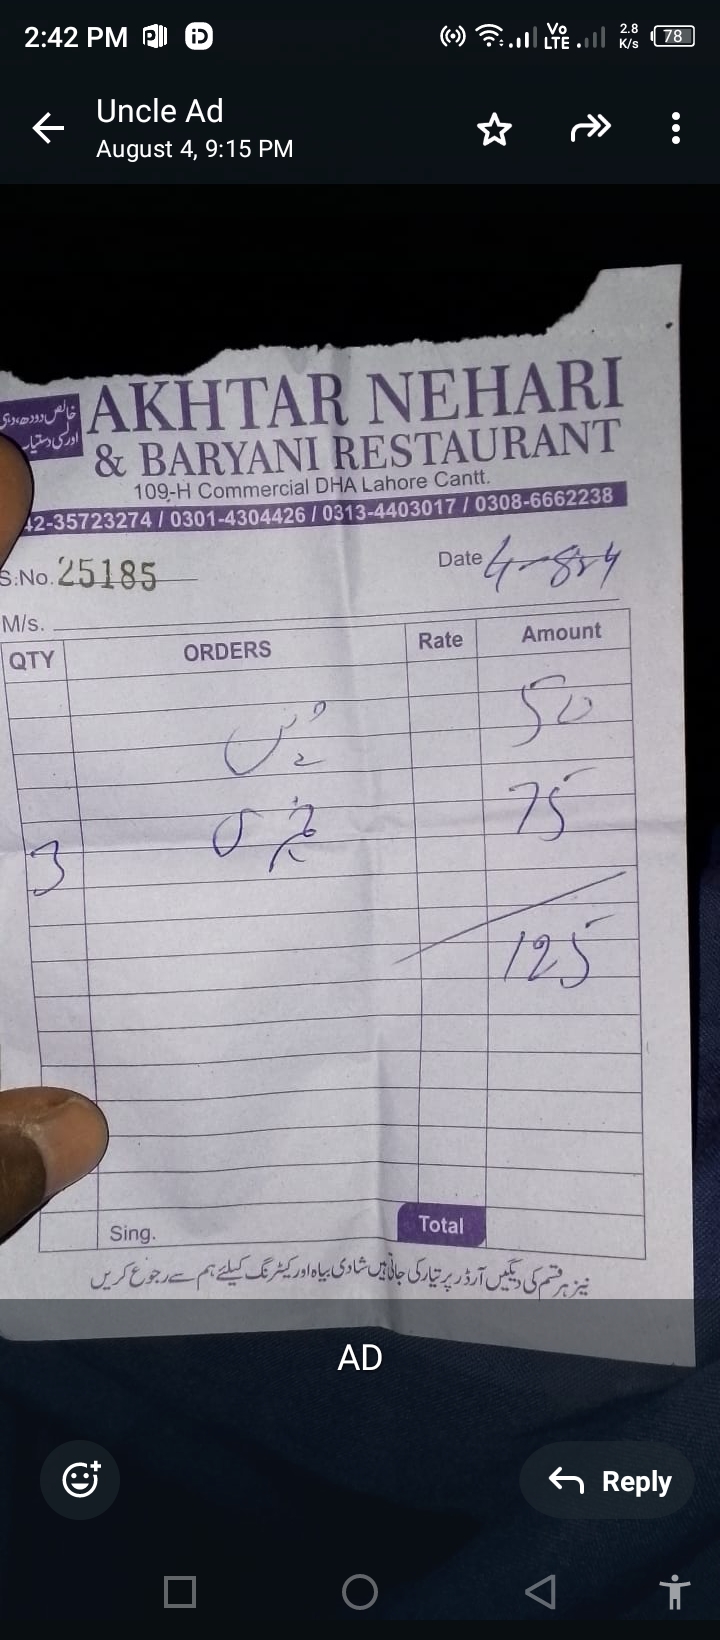 2:42 PM
Vo LTE 2.8 K/s 78
Uncle Ad
August 4, 9:15 PM
خالص دودھ، دہی
اور لسی دستیاب
AKHTAR NEHARI
& BARYANI RESTAURANT
109-H Commercial DHA Lahore Cantt.
42-35723274 / 0301-4304426 / 0313-4403017 / 0308-6662238
S.No. 25185
Date 4-8-24
M/s.
QTY ORDERS Rate Amount
50
75
3
125
Sing. Total
نیز ہر قسم کی دیگیں آرڈر پر تیار کی جاتی ہیں شادی بیاہ اور کیٹرنگ کیلئے ہم سے رجوع کریں
AD
Reply